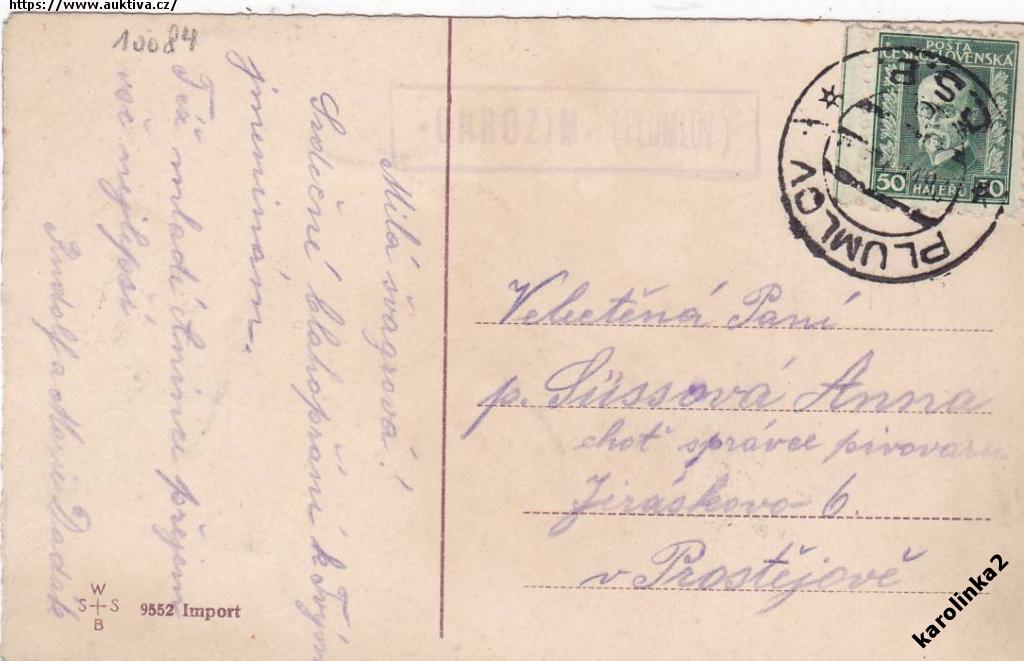 https://www.auktiva.cz/
10084
Milá švagrová!
Srdečné blahopřání k Tvým
jmeninám.
Též mladé Anince přejem
vše nejlepší
Rudolf a Marie Dadák
OHROZIM (PLUMLOV)
POŠTA
ČESKOSLOVENSKÁ
50 HALÉŘŮ 50
PLUMLOV
ČSR
Velectěná Paní
p. Süssová Anna
choť správce pivovaru
Jiráskova 6.
v Prostějově
W
S S
B
9552 Import
karolinka2